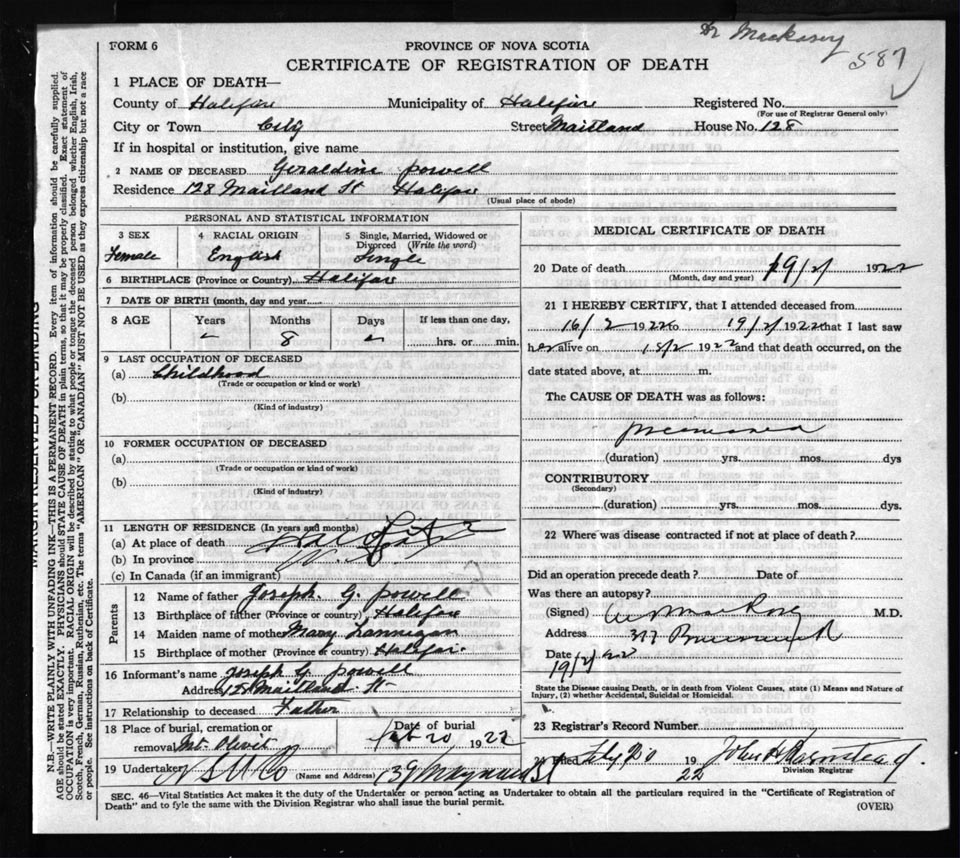 Dr Mackasey
587
FORM 6
PROVINCE OF NOVA SCOTIA
CERTIFICATE OF REGISTRATION OF DEATH
1 PLACE OF DEATH—
County of Halifax Municipality of Halifax Registered No.
(For use of Registrar General only)
City or Town City Street Maitland House No. 128
If in hospital or institution, give name
2 NAME OF DECEASED Geraldine Powell
Residence 128 Maitland St Halifax
(Usual place of abode)
PERSONAL AND STATISTICAL INFORMATION
3 SEX 4 RACIAL ORIGIN 5 Single, Married, Widowed or
Divorced (Write the word)
Female English Single
6 BIRTHPLACE (Province or Country) Halifax
7 DATE OF BIRTH (month, day and year)
8 AGE Years Months Days If less than one day,
- 8 - hrs. or min.
9 LAST OCCUPATION OF DECEASED
(a) Childhood
(Trade or occupation or kind or work)
(b)
(Kind of industry)
10 FORMER OCCUPATION OF DECEASED
(a)
(Trade or occupation or kind of work)
(b)
(Kind of industry)
11 LENGTH OF RESIDENCE (In years and months)
(a) At place of death
(b) In province
(c) In Canada (if an immigrant)
Parents
12 Name of father Joseph G. Powell
13 Birthplace of father (Province or country) Halifax
14 Maiden name of mother Mary Lannigan
15 Birthplace of mother (Province or country) Halifax
16 Informant's name Joseph G. Powell
Address 128 Maitland St
17 Relationship to deceased Father
18 Place of burial, cremation or Date of burial
removal Mt. Olivet Feb 20 1922
19 Undertaker (Name and Address) 139 Maynard St
MEDICAL CERTIFICATE OF DEATH
20 Date of death 19/2/ 1922
(Month, day and year)
21 I HEREBY CERTIFY, that I attended deceased from
16/2 1922 to 19/2/ 1922 that I last saw
her alive on 18/2 1922 and that death occurred, on the
date stated above, at m.
The CAUSE OF DEATH was as follows:
pneumonia
(duration) yrs. mos. dys
CONTRIBUTORY
(Secondary)
(duration) yrs. mos. dys.
22 Where was disease contracted if not at place of death?
Did an operation precede death? Date of
Was there an autopsy?
(Signed) M.D.
Address Brunswick
Date
19/2/22
State the Disease causing Death, or in death from Violent Causes, state (1) Means and Nature of
Injury, (2) whether Accidental, Suicidal or Homicidal.
23 Registrar's Record Number
Filed 20 19 22
Division Registrar
SEC. 46—Vital Statistics Act makes it the duty of the Undertaker or person acting as Undertaker to obtain all the particulars required in the "Certificate of Registration of
Death" and to fyle the same with the Division Registrar who shall issue the burial permit.
(OVER)
MARGIN RESERVED FOR BINDING
N.B.—WRITE PLAINLY WITH UNFADING INK—THIS IS A PERMANENT RECORD. Every item of information should be carefully supplied.
AGE should be stated EXACTLY. PHYSICIANS should STATE CAUSE OF DEATH in plain terms, so that it may be properly classified. Exact statement of
OCCUPATION is very important. RACIAL ORIGIN will be described by stating to what people or tongue the deceased person belonged whether English, Irish,
Scotch, French, German, Russian, Ruthenian, etc. The terms "AMERICAN" OR "CANADIAN" MUST NOT BE USED as they express citizenship but not a race
or people. See instructions on back of Certificate.